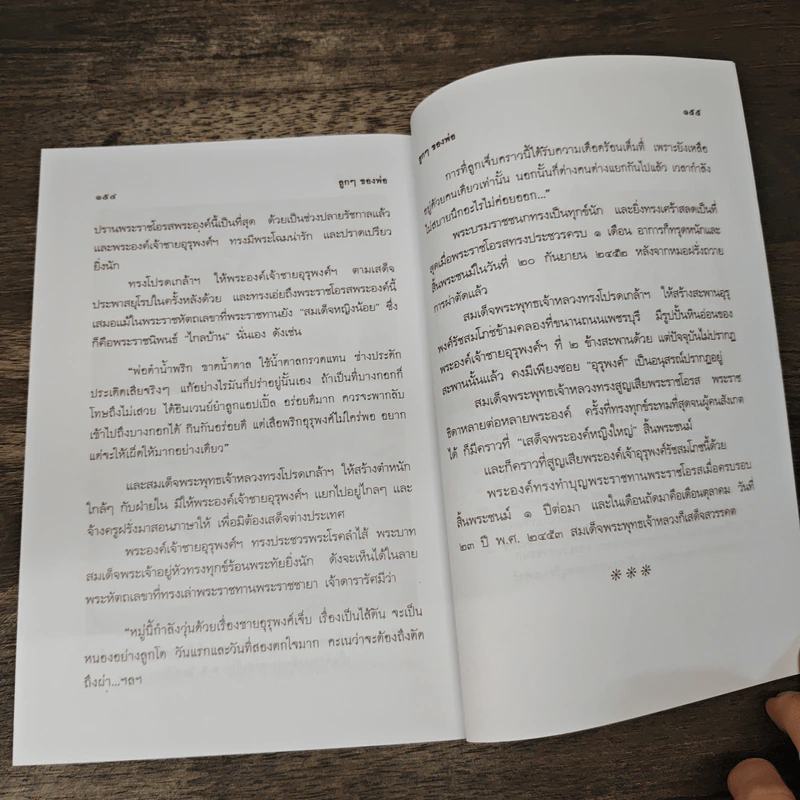 ๑๕๔
ลูกๆ ของพ่อ
ปรานพระราชโอรสพระองค์นี้เป็นที่สุด ด้วยเป็นช่วงปลายรัชกาลแล้ว
และพระองค์เจ้าชายอุรุพงศ์ฯ ทรงมีพระโฉมน่ารัก และปราดเปรียว
ยิ่งนัก
ทรงโปรดเกล้าฯ ให้พระองค์เจ้าชายอุรุพงศ์ฯ ตามเสด็จ
ประพาสยุโรปในครั้งหลังด้วย และทรงเอ่ยถึงพระราชโอรสพระองค์นี้
เสมอแม้ในพระราชหัตถเลขาที่พระราชทานยัง "สมเด็จหญิงน้อย" ซึ่ง
ก็คือพระราชนิพนธ์ "ไกลบ้าน" นั่นเอง ดังเช่น
"พ่อตำน้ำพริก ขาดน้ำตาล ใช้น้ำตาลกรวดแทน ช่างประดัก
ประเดิดเสียจริงๆ แก้อย่างไรมันก็ปร่าอยู่นั้นเอง ถ้าเป็นที่บางกอกก็
โทษถึงไม่เสวย ได้ชิมเวนย์ยำลูกแอปเปิ้ล อร่อยดีมาก ควรจะพากลับ
เข้าไปถึงบางกอกได้ กินกันอร่อยดี แต่เสือพริกอุรุพงศ์ไม่ใคร่พอ อยาก
แต่จะให้เผ็ดให้มากอย่างเดียว"
และสมเด็จพระพุทธเจ้าหลวงทรงโปรดเกล้าฯ ให้สร้างตำหนัก
ใกล้ๆ กับฝ่ายใน มีให้พระองค์เจ้าชายอุรุพงศ์ฯ แยกไปอยู่ไกลๆ และ
จ้างครูฝรั่งมาสอนภาษาให้ เพื่อมิต้องเสด็จต่างประเทศ
พระองค์เจ้าชายอุรุพงศ์ฯ ทรงประชวรพระโรคลำไส้ พระบาท
สมเด็จพระเจ้าอยู่หัวทรงทุกข์ร้อนพระทัยยิ่งนัก ดังจะเห็นได้ในลาย
พระหัตถเลขาที่ทรงเล่าพระราชทานพระราชชายา เจ้าดารารัศมีว่า
"หมู่นี้กำลังวุ่นด้วยเรื่องชายอุรุพงศ์เจ็บ เรื่องเป็นไส้ตัน จะเป็น
หนองอย่างลูกโต วันแรกและวันที่สองตกใจมาก คะเนว่าจะต้องถึงตัด
ถึงผ่า...ฯลฯ
๑๕๕
ลูกๆ ของพ่อ
การที่ลูกเจ็บคราวนี้ได้รับความเดือดร้อนเต็มที่ เพราะยังเหลือ
อยู่ด้วยคนเดียวเท่านั้น นอกนั้นก็ต่างคนต่างแยกกันไปแล้ว เวลากำลัง
ไม่สบายนึกอะไรไม่ค่อยออก..."
พระบรมราชชนกทรงเป็นทุกข์นัก และยิ่งทรงเศร้าสลดเป็นที่
สุดเมื่อพระราชโอรสทรงประชวรครบ ๑ เดือน อาการก็ทรุดหนักและ
สิ้นพระชนม์ในวันที่ ๒๐ กันยายน ๒๔๕๒ หลังจากหมอฝรั่งถวาย
การผ่าตัดแล้ว
สมเด็จพระพุทธเจ้าหลวงทรงโปรดเกล้าฯ ให้สร้างสะพานอุรุ
พงศ์รัชสมโภชข้ามคลองที่ขนานถนนเพชรบุรี มีรูปปั้นหินอ่อนของ
พระองค์เจ้าชายอุรุพงศ์ฯ ที่ ๒ ข้างสะพานด้วย แต่ปัจจุบันไม่ปรากฏ
สะพานนั้นแล้ว คงมีเพียงซอย "อุรุพงศ์" เป็นอนุสรณ์ปรากฏอยู่
สมเด็จพระพุทธเจ้าหลวงทรงสูญเสียพระราชโอรส พระราช
ธิดาหลายต่อหลายพระองค์ ครั้งที่ทรงทุกข์ระทมที่สุดจนผู้คนสังเกต
ได้ ก็มีคราวที่ "เสด็จพระองค์หญิงใหญ่" สิ้นพระชนม์
และก็คราวที่สูญเสียพระองค์เจ้าอุรุพงศ์รัชสมโภชนี้ด้วย
พระองค์ทรงทำบุญพระราชทานพระราชโอรสเมื่อครบรอบ
สิ้นพระชนม์ ๑ ปีต่อมา และในเดือนถัดมาคือเดือนตุลาคม วันที่
๒๓ ปี พ.ศ. ๒๔๕๓ สมเด็จพระพุทธเจ้าหลวงก็เสด็จสวรรคต